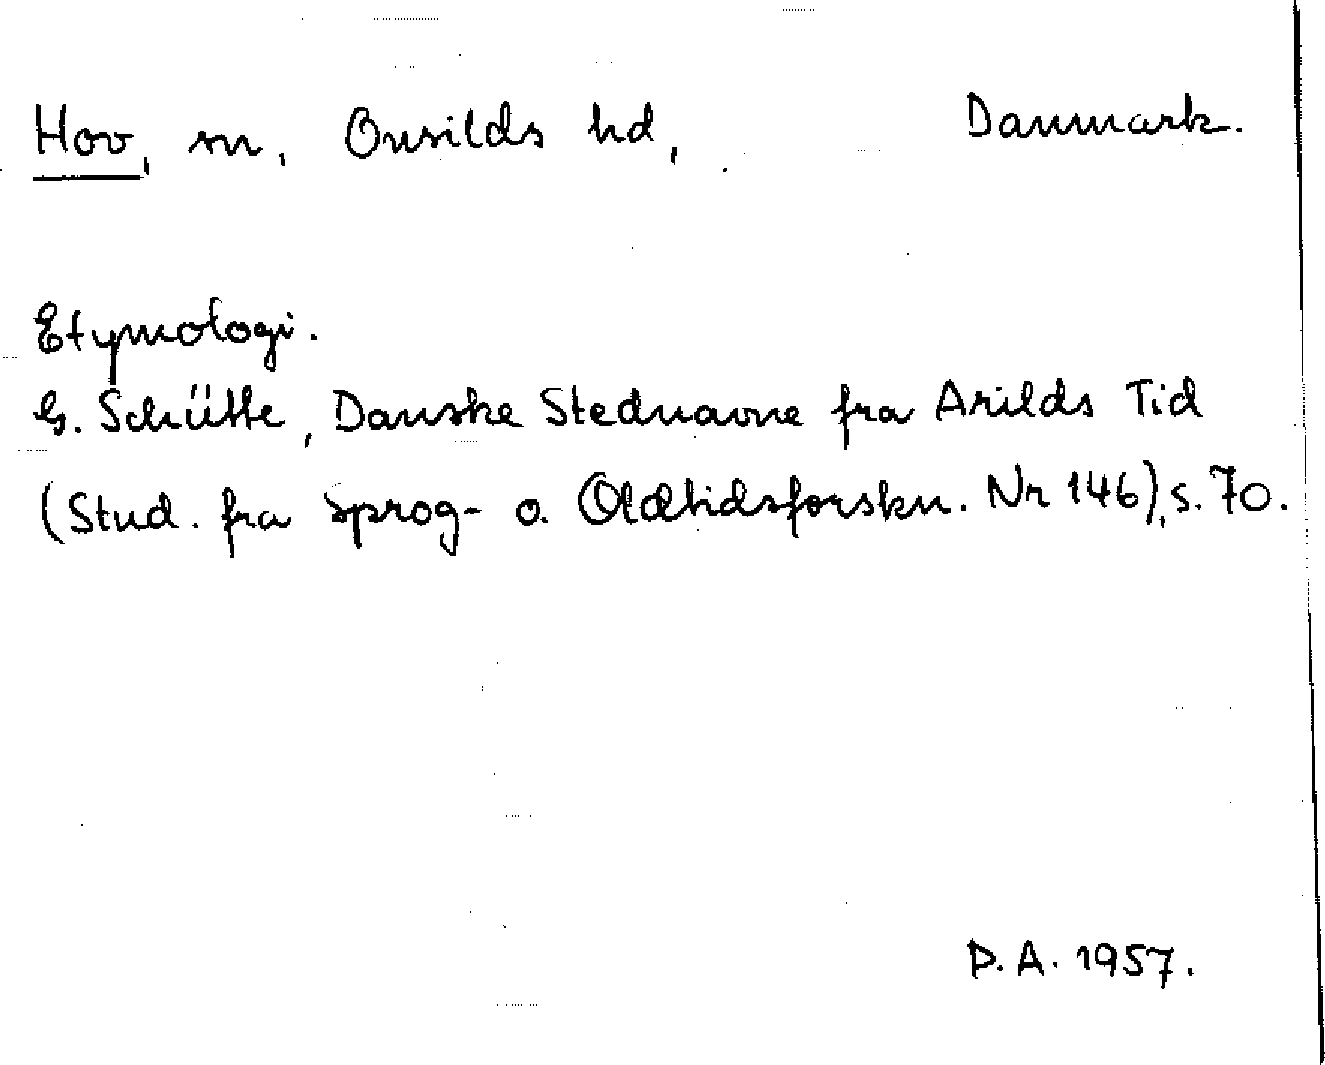 Hov, sn, Onsilds hd, Danmark.
Etymologi.
G. Schütte, Danske Stednavne fra Arilds Tid
(Stud. fra Sprog- o. Oldtidsforskn. Nr 146), s. 70.
P. A. 1957.